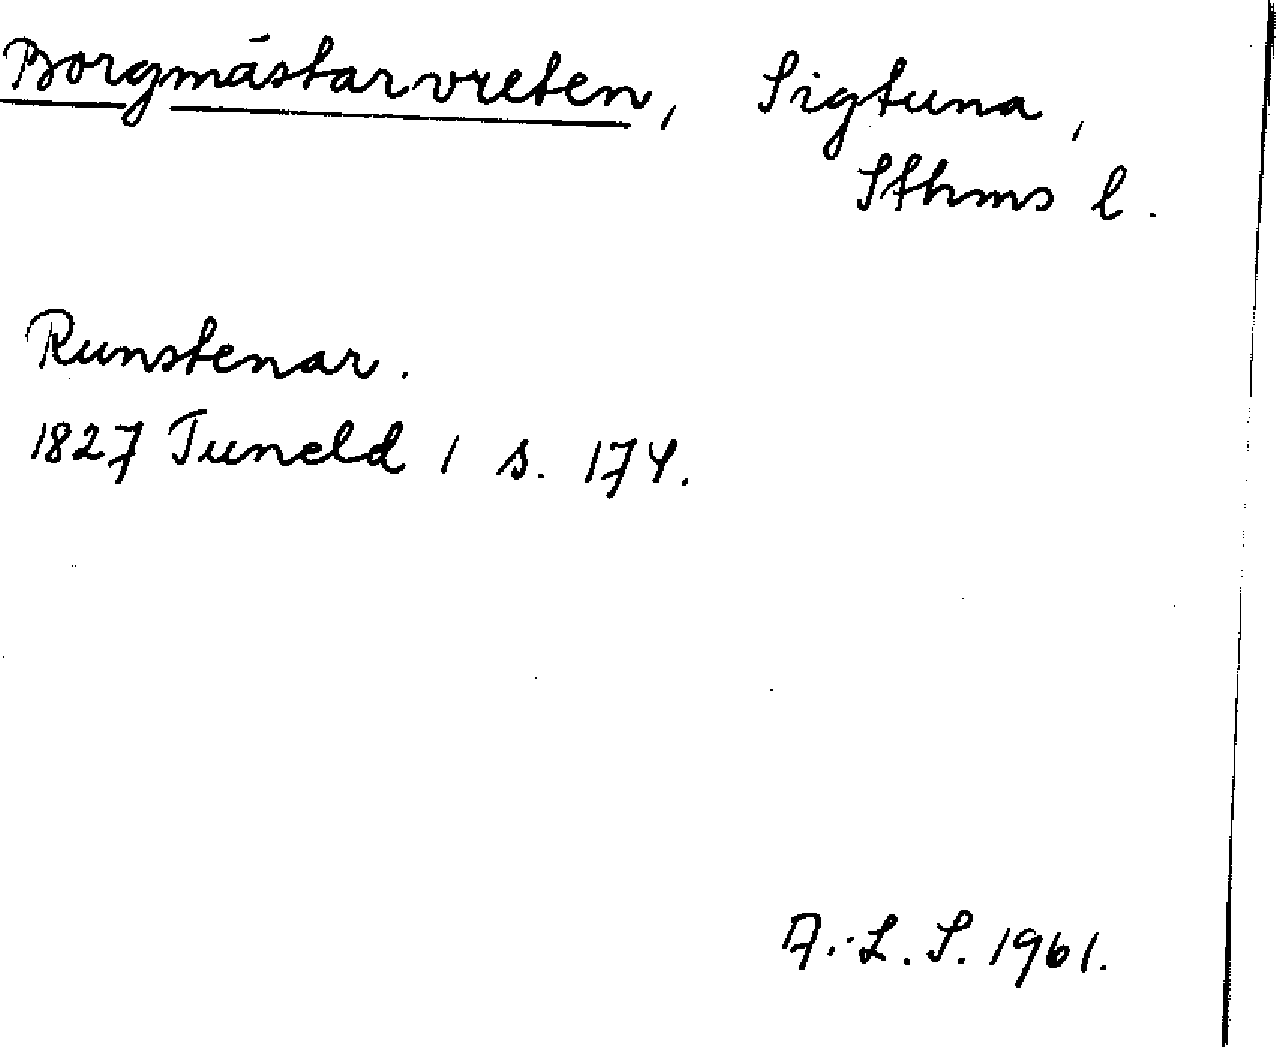 Borgmästarvreten, Sigtuna,
Sthms l.
Runstenar.
1827 Tuneld 1 s. 174.
A.-L. S. 1961.